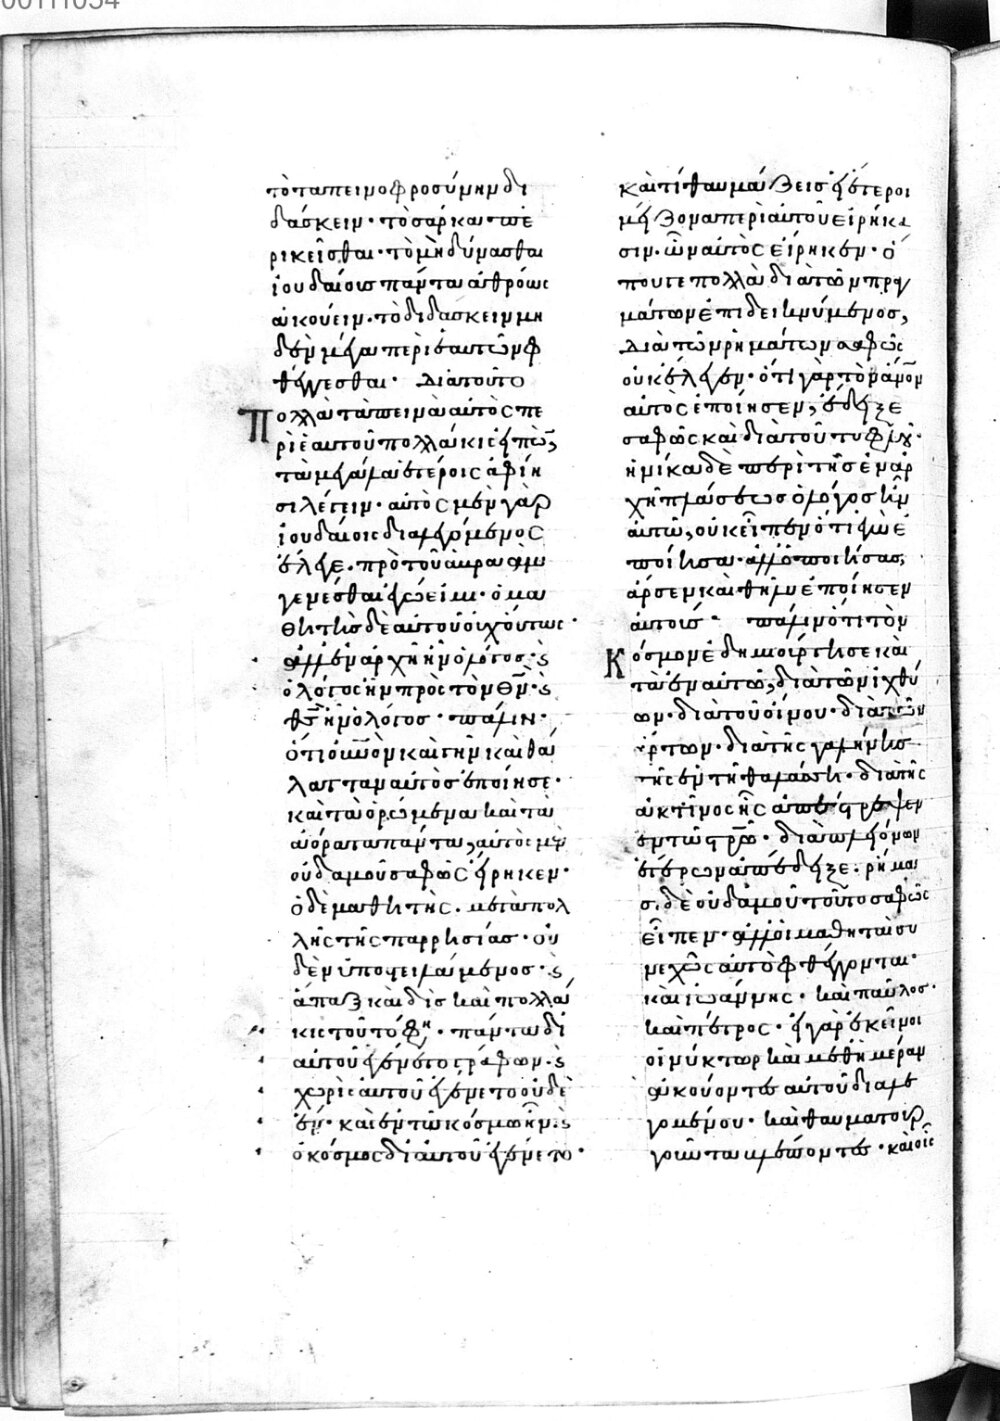 τὸ ταπεινοφροσύνην δι
δάσκειν· τὸ σάρκα πε
ρικεῖσθαι· τὸ μὴ δύνασθαι
ἰουδαίους πάντα ἀθρόως
ἀκούειν· τὸ διδάσκειν μη
δὲν μέγα περὶ ἑαυτῶν φ
θέγγεσθαι· διὰ τοῦτο
Πολλὰ ταπεινὰ αὐτὸς πε
ρὶ ἑαυτοῦ πολλάκις εἰπὼν,
τὰ μεγάλα ἑτέροις ἀφίη
σι λέγειν· αὐτὸς μὲν γὰρ
ἰουδαίοις διαλεγόμενος
ἔλεγε· πρὸ τοῦ ἀβραὰμ
γενέσθαι ἐγώ εἰμι· ὁ μα
θητὴς δὲ αὐτοῦ οὐχ οὕτως·
ἀλλ' ἐν ἀρχῆ ἦν ὁ λόγος· ϗ
ὁ λόγος ἦν πρὸς τὸν θν· ϗ
θς ἦν ὁ λόγος· πάλιν·
ὅτι οὐνὸν καὶ γῆν καὶ θά
λατταν αὐτὸς ἐποίησε·
καὶ τὰ ὁρώμενα καὶ τὰ
ἀόρατα πάντα, αὐτὸς μὲν
οὐδαμοῦ σαφῶς εἴρηκεν·
ὁ δὲ μαθητής· μετὰ πολ
λῆς τῆς παρρησίας· οὐ
δὲν ὑποστειλάμενος· ϗ
ἅπαξ καὶ δὶς καὶ πολλά
κις τοῦτό φη· πάντα δι
αὐτοῦ ἐγένετο γράφων· ϗ
χωρὶς αὐτοῦ ἐγένετο οὐδὲ
ἕν· καὶ ἐν τῶ κόσμω ἦν· ϗ
ὁ κόσμος δι αὐτοῦ ἐγένετο·
καὶ τί θαυμάζεις εἰ ἕτεροι
μείζονα περὶ αὐτοῦ εἰρήκα
σιν· ὧν αὐτὸς εἴρηκεν· ὅ
που γε πολλὰ διὰ τῶν πραγ
μάτων ἐπιδεικνύμενος,
διὰ τῶν ρημάτων σαφῶς
οὐκ ἔλεγεν· ὅτι γὰρ τὸν ἄνον
αὐτὸς ἐποίησεν, ἔδειξε
σαφῶς καὶ διὰ τοῦ τυφλοῦ·
ἡνίκα δὲ περὶ τῆς ἐν ἀρ
χῆ πλάσεως ὁ λόγος ἦν
αὐτῶ, οὐκ εἶπεν ὅτι ἐγὼ ἐ
ποίησα· ἀλλ' ὁ ποιήσας,
ἄρσεν καὶ θῆλυ ἐποίησεν
αὐτούς· πάλιν ὅτι τὸν
Κόσμον ἐδημιούργησε καὶ
τὰ ἐν αὐτῶ, διὰ τῶν ἰχθύ
ων· διὰ τοῦ οἴνου· διὰ τῶν
ἄρτων· διὰ τῆς γαλήνης
τῆς ἐν τῆ θαλάσση· διὰ τῆς
ἀκτῖνος ἧς ἀπέστρεψεν
ἐν τῶ στρῶ· δι' ἄλλων
ἑτέρων ἀπέδειξε· ρήμα
σι δὲ οὐδαμοῦ τοῦτο σαφῶς
εἶπεν· ἀλλ' οἱ μαθηταὶ συ
νεχῶς αὐτὸ φθέγγονται·
καὶ ἰωάννης· καὶ παῦλος·
καὶ πέτρος· εἰ γὰρ ἐκεῖνοι
οἱ νύκτωρ καὶ μεθημέραν
ἀκούοντες αὐτοῦ διαλε
γομένου· καὶ θαυματουρ
γοῦντα βλέποντες· καὶ οἷς